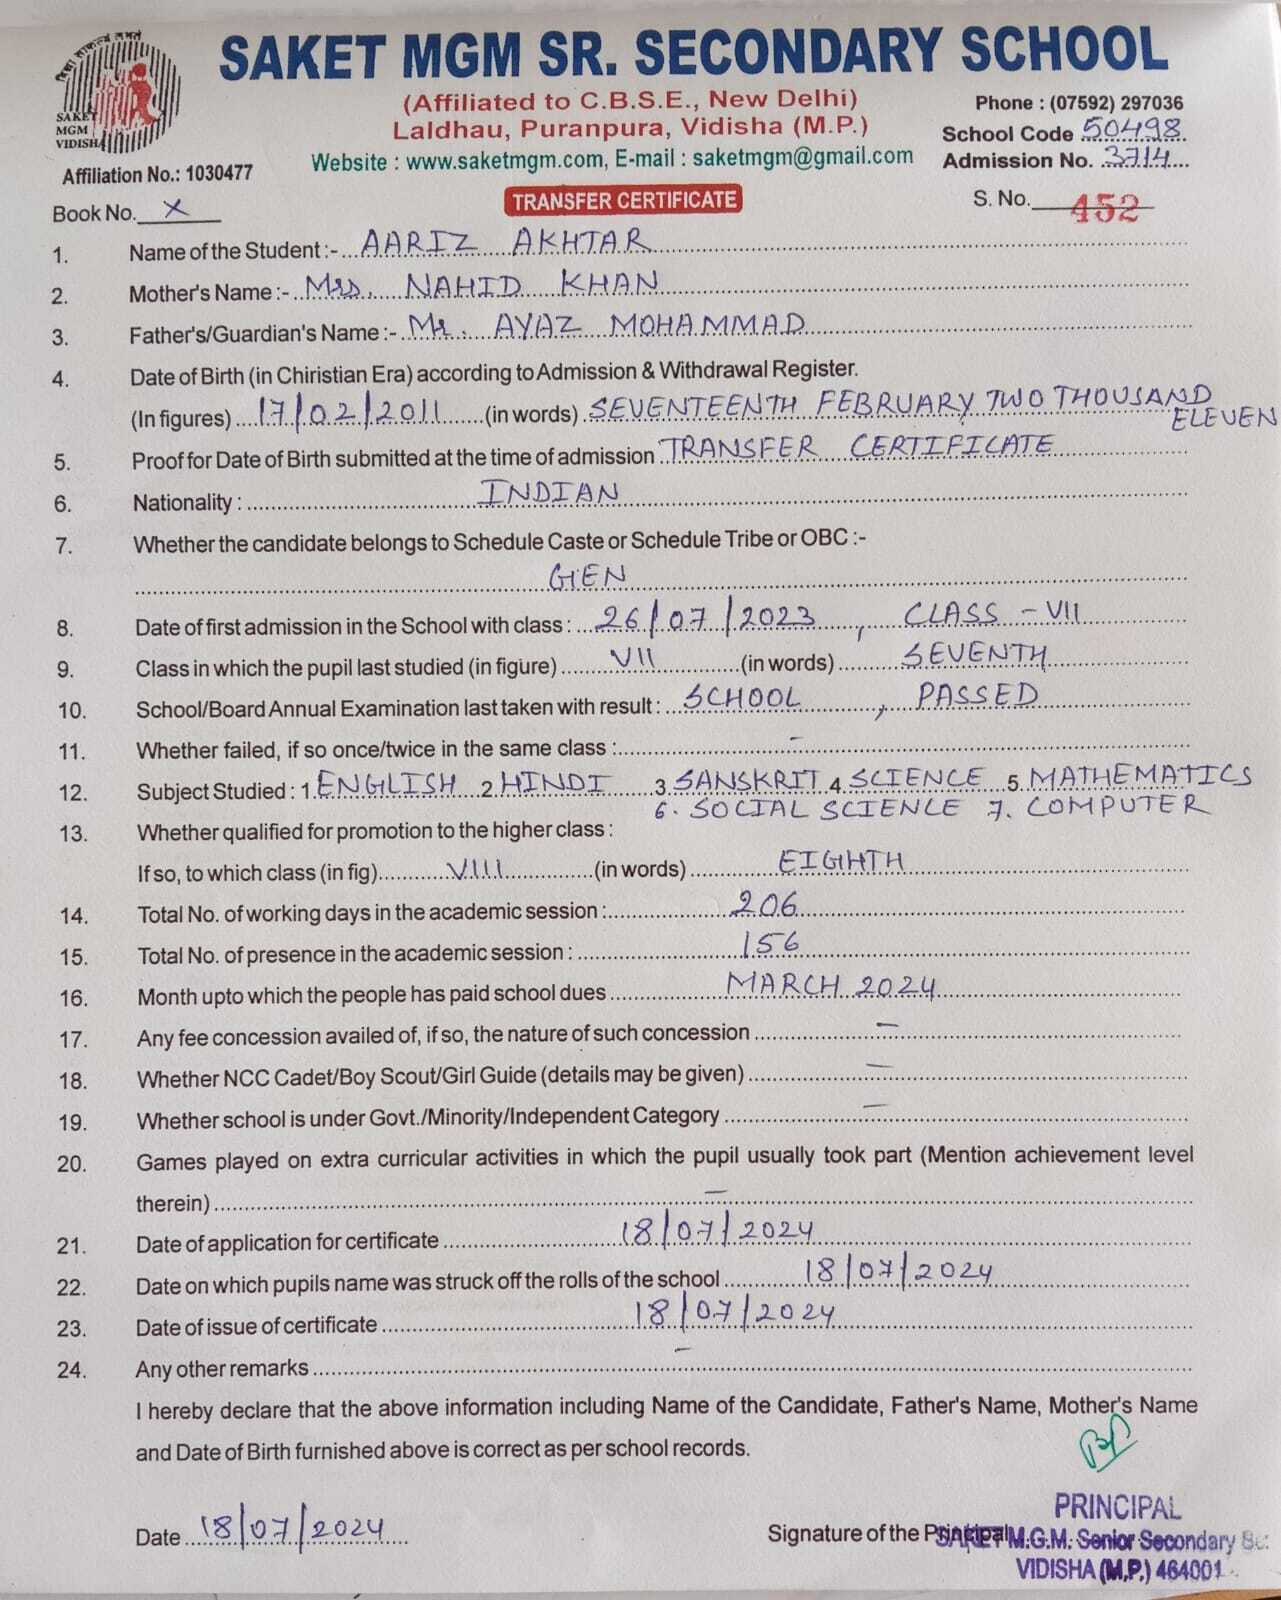 SAKET MGM SR. SECONDARY SCHOOL
(Affiliated to C.B.S.E., New Delhi)
Laldhau, Puranpura, Vidisha (M.P.)
Website : www.saketmgm.com, E-mail : saketmgm@gmail.com
Phone : (07592) 297036
School Code 50498
Admission No. 3714
SAKET
MGM
VIDISHA
Affiliation No.: 1030477
Book No. X
TRANSFER CERTIFICATE
S. No. 452
1. Name of the Student :- AARIZ AKHTAR
2. Mother's Name :- Mrs. NAHID KHAN
3. Father's/Guardian's Name :- Mr. AYAZ MOHAMMAD
4. Date of Birth (in Chiristian Era) according to Admission & Withdrawal Register.
(In figures) 17/02/2011 (in words) SEVENTEENTH FEBRUARY TWO THOUSAND
ELEVEN
5. Proof for Date of Birth submitted at the time of admission TRANSFER CERTIFICATE
6. Nationality : INDIAN
7. Whether the candidate belongs to Schedule Caste or Schedule Tribe or OBC :-
GEN
8. Date of first admission in the School with class : 26/07/2023, CLASS - VII
9. Class in which the pupil last studied (in figure) VII (in words) SEVENTH
10. School/Board Annual Examination last taken with result : SCHOOL, PASSED
11. Whether failed, if so once/twice in the same class : -
12. Subject Studied : 1. ENGLISH 2 HINDI 3. SANSKRIT 4 SCIENCE 5 MATHEMATICS
6. SOCIAL SCIENCE 7. COMPUTER
13. Whether qualified for promotion to the higher class :
If so, to which class (in fig) VIII (in words) EIGHTH
14. Total No. of working days in the academic session : 206
15. Total No. of presence in the academic session : 156
16. Month upto which the people has paid school dues MARCH 2024
17. Any fee concession availed of, if so, the nature of such concession -
18. Whether NCC Cadet/Boy Scout/Girl Guide (details may be given) -
19. Whether school is under Govt./Minority/Independent Category -
20. Games played on extra curricular activities in which the pupil usually took part (Mention achievement level
therein) -
21. Date of application for certificate 18/07/2024
22. Date on which pupils name was struck off the rolls of the school 18/07/2024
23. Date of issue of certificate 18/07/2024
24. Any other remarks -
I hereby declare that the above information including Name of the Candidate, Father's Name, Mother's Name
and Date of Birth furnished above is correct as per school records.
Date 18/07/2024
Signature of the Principal
PRINCIPAL
SAKET M.G.M. Senior Secondary Sc.
VIDISHA (M.P.) 464001